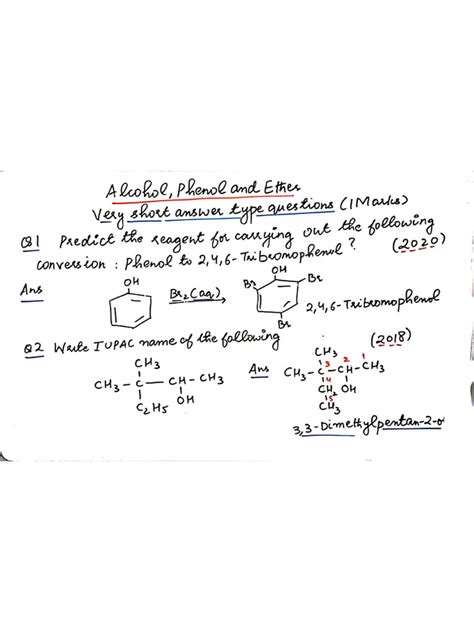 Alcohol, Phenol and Ether
Very short answer type questions (1Marks)
Q1 Predict the reagent for carrying out the following
conversion : Phenol to 2,4,6-Tribromophenol ? (2020)
Ans
OH
Br2(aq)
OH
Br
Br
Br
2,4,6-Tribromophenol
Q2 Write IUPAC name of the following (2018)
CH3
CH3-C-CH-CH3
C2H5 OH
Ans
CH3
3 2 1
CH3-C-CH-CH3
4
CH2 OH
5
CH3
3,3-Dimethylpentan-2-o